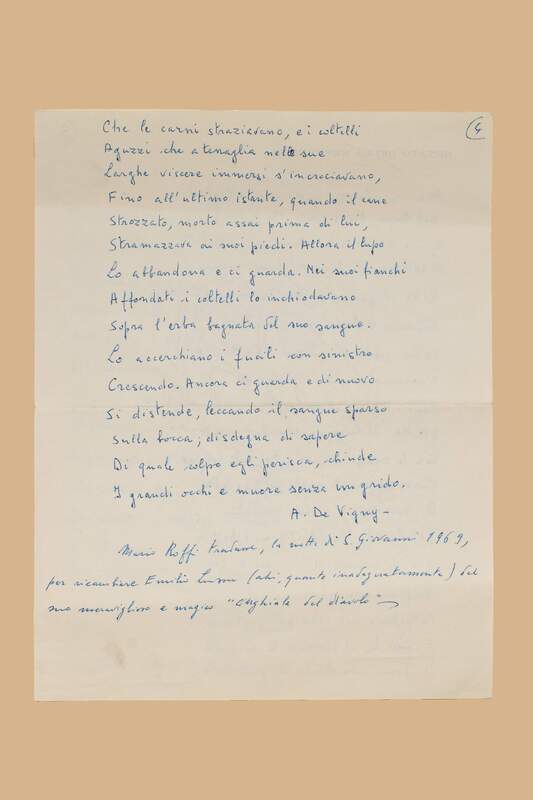 4
Che le carni straziavano, e i coltelli
Aguzzi che a tenaglia nelle sue
Larghe viscere immersi s'incrociavano,
Fino all'ultimo istante, quando il cane
Strozzato, morto assai prima di lui,
Stramazzava ai suoi piedi. Allora il lupo
Lo abbandona e ci guarda. Nei suoi fianchi
Affondati i coltelli lo inchiodavano
Sopra l'erba bagnata del suo sangue.
Lo accerchiano i fucili con sinistro
Crescendo. Ancora ci guarda e di nuovo
Si distende, leccando il sangue sparso
Sulla bocca; disdegna di sapere
Di quale colpo egli perisca, chiude
I grandi occhi e muore senza un grido.
A. De Vigny-
Mario Roffi tradusse, la notte di S. Giovanni 1969,
per ricambiare Emilio Lussu (ahi, quanto inadeguatamente) del
suo meraviglioso e magico "cinghiale del diavolo"